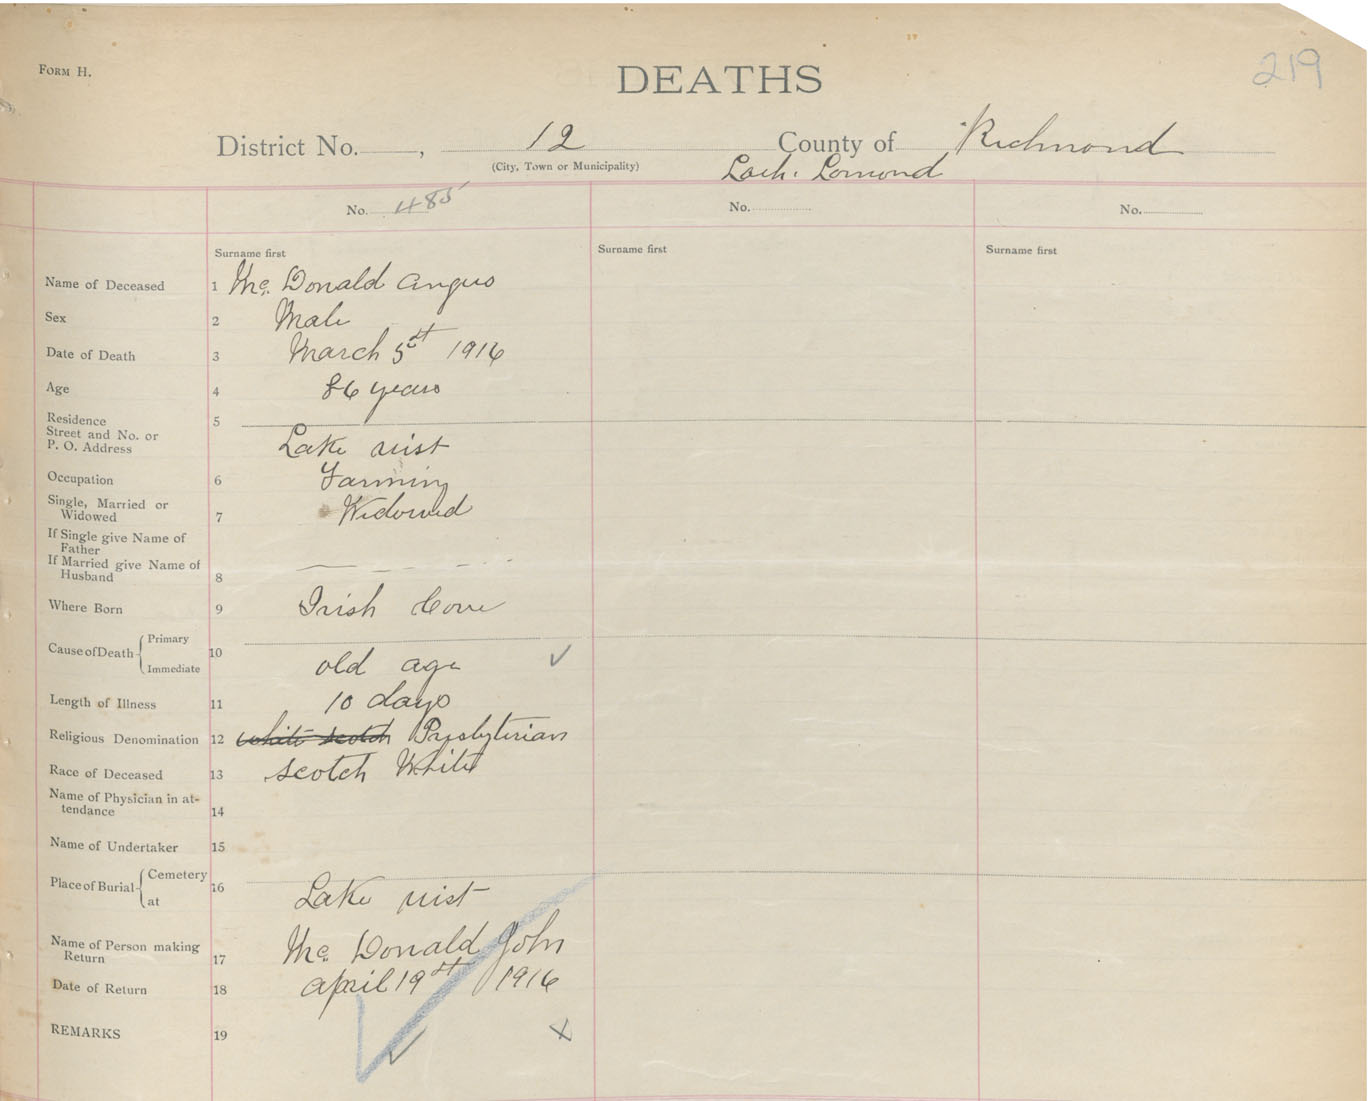 219
Form H.
DEATHS
District No. , 12 County of Richmond
(City, Town or Municipality)
Loch. Lomond
No. 485 No. No.
Surname first Surname first Surname first
Name of Deceased 1 Mc. Donald Angus
Sex 2 Male
Date of Death 3 March 5st 1916
Age 4 86 years
Residence 5
Street and No. or
P. O. Address Lake uist
Occupation 6 Farming
Single, Married or
Widowed 7 Widowed
If Single give Name of
Father
If Married give Name of
Husband 8
Where Born 9 Irish Cove
Cause of Death Primary 10
Immediate old age
Length of Illness 11 10 days
Religious Denomination 12 white scotch Presbyterian
Race of Deceased 13 scotch White
Name of Physician in at-
tendance 14
Name of Undertaker 15
Place of Burial Cemetery 16
at Lake uist
Name of Person making
Return 17 Mc. Donald John
Date of Return 18 april 19st 1916
REMARKS 19